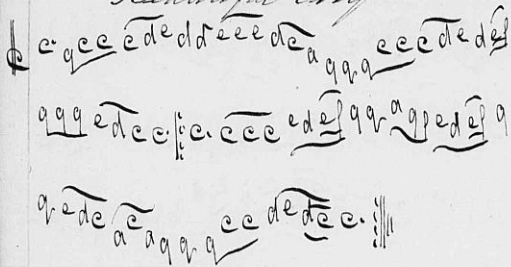 c. g c c c d e d d e e e d c a g g g c c c d e d e f
g g g e d c c. c. c c c e d e f g g a g g e d e f g
g e d c a c a g g g c c d e d c c.